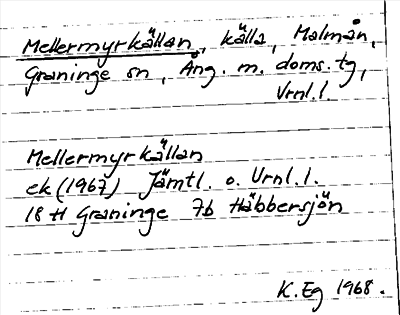 Mellermyrkällan, källa, Malmån,
Graninge sn, Ång. m. doms. tg,
Vrnl.l.
Mellermyrkällan
ek (1967) Jämtl. o. Vrnl.l.
18 H Graninge 7b Häbbersjön
K. Eg 1968.